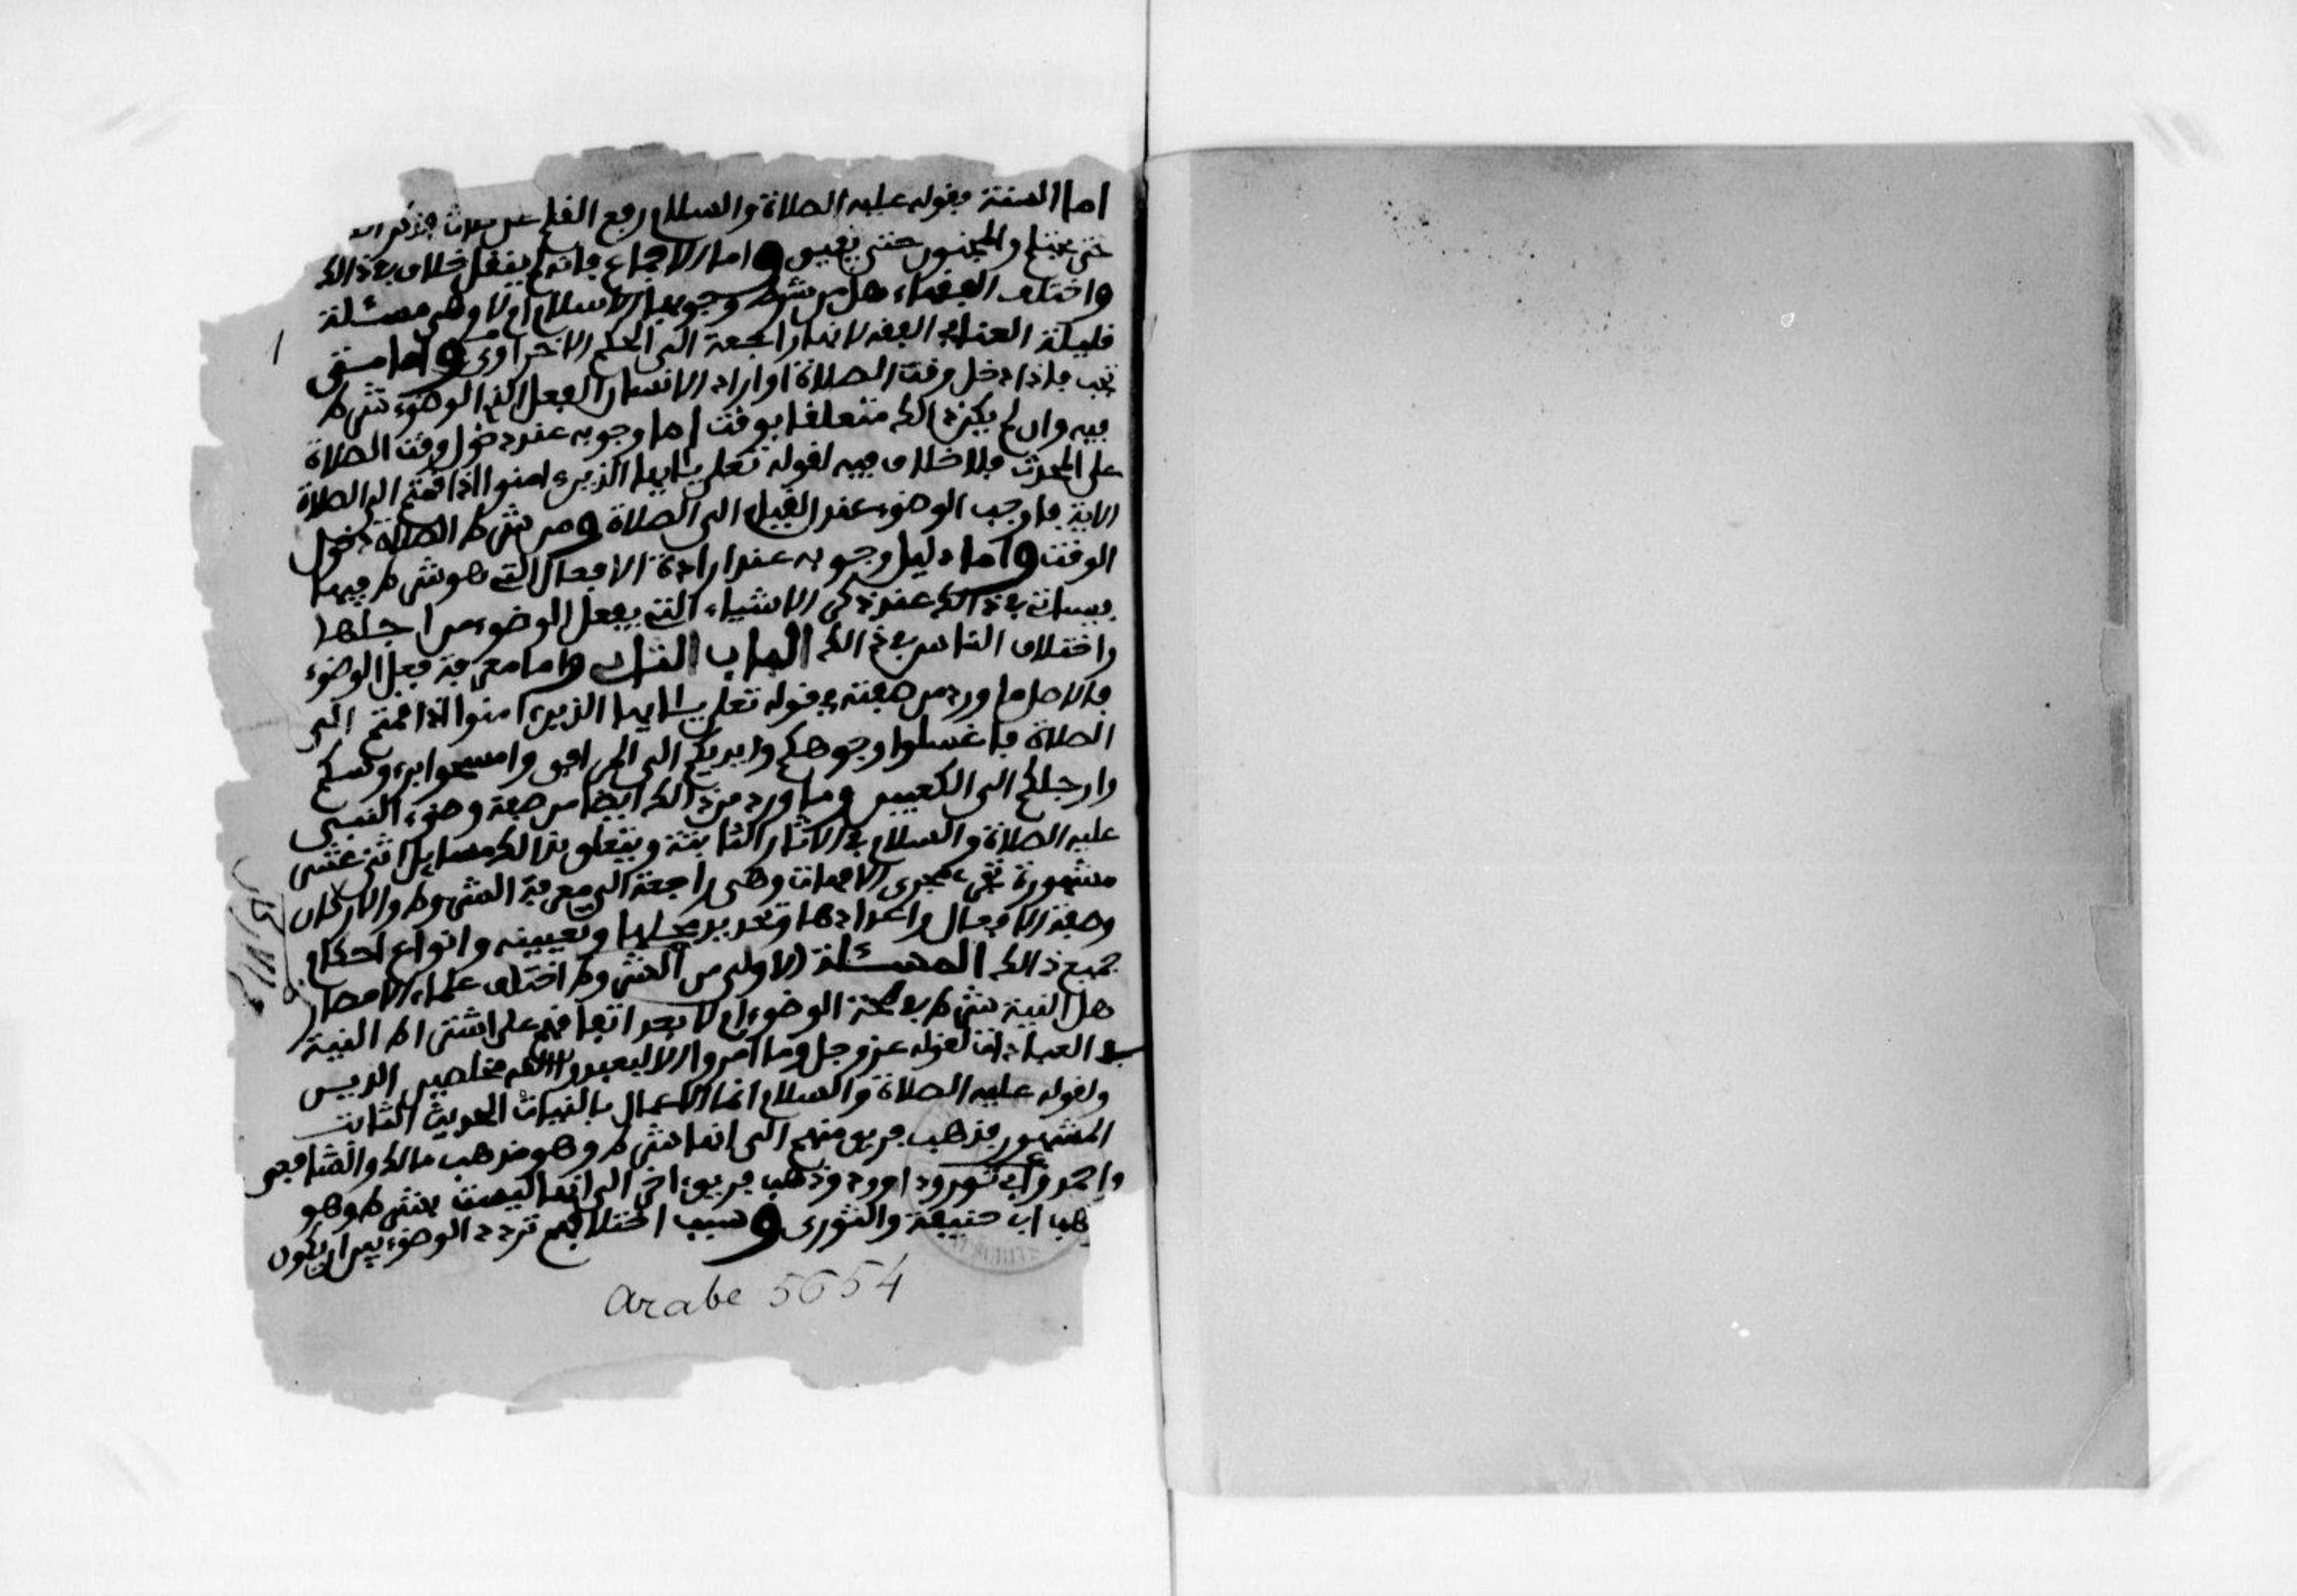 اما السنة فقوله عليه الصلاة والسلام رفع القلم عن ثلاث فذكر
حتى يحتلم والمجنون حتى يفيق واما الاجماع فانه لم ينقل خلاف في ذالك
واختلف الفقهاء هل من شرط وجوبها الاسلام ام لا وهي مسئلة
قليلة الغناء في الفقه لانها راجعة الى الحكم الاخراوي واما متى
تجب فاذا دخل وقت الصلاة او اراد الانسان الفعل الذي الوضوء شرط
فيه وان لم يكن ذالك متعلقا بوقت اما وجوبه عند دخول وقت الصلاة
على المحدث فلا خلاف فيه لقوله تعلى يايها الذين ءامنوا اذا قمتم الى الصلاة
الاية فاوجب الوضوء عند القيام الى الصلاة ومن شرط الصلاة دخول
الوقت واما دليل وجوبه عند ارادة الافعال التي هو شرط فيها
فسياتي في ذالك عند ذكر الاشياء التي يفعل الوضوء من اجلها
واختلاف الناس في ذالك الباب الثاني واما معرفة فعل الوضوء
فالاصل ما ورد من صفته في قوله تعلى يايها الذين ءامنوا اذا قمتم الى
الصلاة فاغسلوا وجوهكم وايديكم الى المرافق وامسحوا برءوسكم
وارجلكم الى الكعبين وما ورد من ذالك ايضا من صفة وضوء النبي
عليه الصلاة والسلام في الاثار الثابتة ويتعلق بذالك مسايل اثنى عشر
مشهورة تجري مجرى الامهات وهي راجعة الى معرفة الشروط والاركان
وصفة الافعال واعدادها وتحديد محلها وتعيينه وانواع احكام
جميع ذالك المسئلة الاولى من الشروط اختلف علماء الامصار
هل النية شرط في صحة الوضوء ام لا بعد اتفاقهم على اشتراط النية
في العبادات لقوله عز وجل وما امروا الا ليعبدوا الله مخلصين الدين
ولقوله عليه الصلاة والسلام انما الاعمال بالنيات الحديث الثابت
المشهور فذهب فريق منهم الى انها شرط وهو مذهب مالك والشافعي
واحمد وأبي ثور وداوود وذهب فريق اخر الى انها ليست بشرط وهو
هب ابي حنيفة والثوري وسبب اختلافهم تردد الوضوء بين ان يكون
Arabe 5654
1